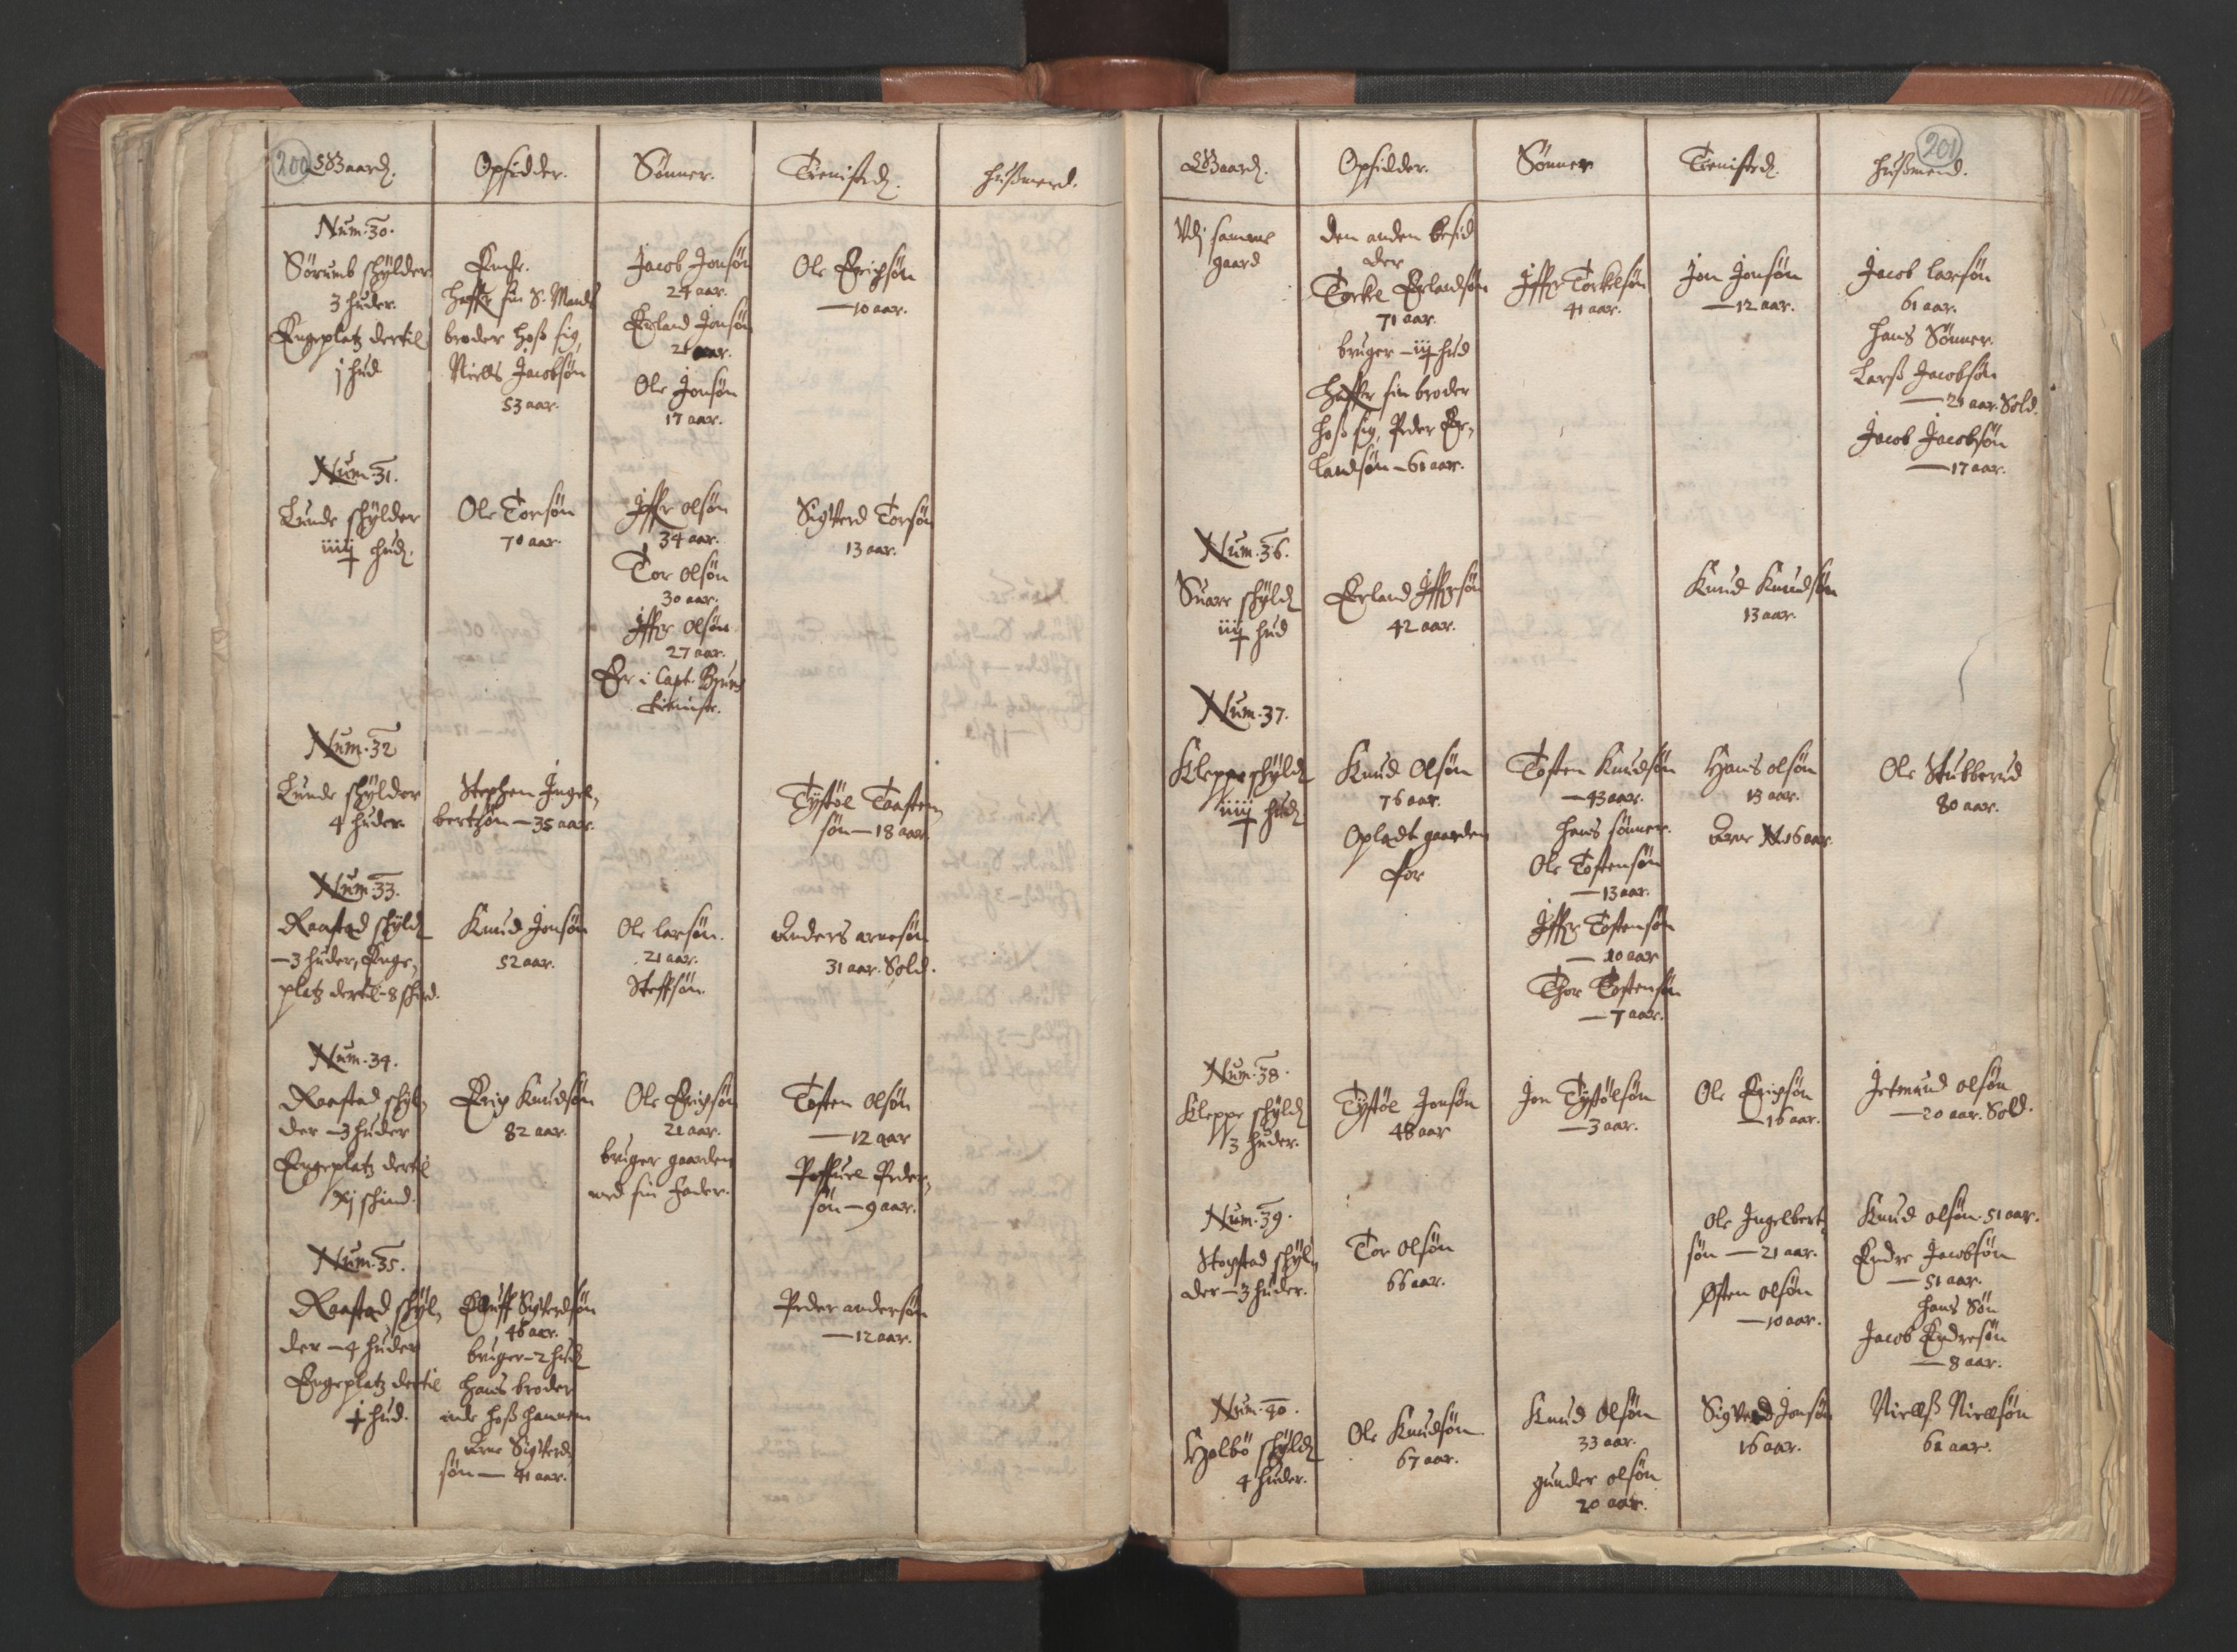 200
Gaard.
Opsidder.
Sønner.
Tienistd.
Hußmend.
Num. 30.
Sørumb schylder
3 huder.
Engeplatz dertil
j hud
Encke.
haffr sin S. Mands
broder hoß sig,
Niells Jacobsøn
53 aar.
Jacob Jonsøn
24 aar.
Erland Jonsøn
aar.
Ole Jonsøn
17 aar.
Ole Erichsøn
— 10 aar.
Num. 31.
Lunde schylder
iiij hud.
Ole Torsøn
70 aar.
Iffr olsøn
34 aar.
Tor olsøn
30 aar.
Iffr olsøn
27 aar.
Er i Capt. Bruns
tieniste.
Sigverd Torsøn
13 aar.
Num. 32
Lunde schylder
4 huder.
Stephen Ingel,
bertsøn — 35 aar.
Tystøl Taasten,
søn — 18 aar.
Num. 33.
Raastad schyld
— 3 huder, Enge,
platz dertil - 8 schind.
Knud Jonsøn
52 aar.
Ole larsøn.
21 aar.
Steffsøn.
Anders arnesøn
31 aar. Sold.
Num. 34.
Raastad schyl,
der — 3 huder
Engeplatz dertil
xj schind.
Erich Knudsøn
82 aar.
Ole Erichsøn
21 aar.
bruger gaarden
med sin Fader.
Tosten olsøn
— 12 aar
Poffuel Peder,
søn — 9 aar.
Num. 35.
Raastad schyl,
der — 4 huder
Engeplatz dertil
j hud.
Elluff Sigverdsøn
46 aar.
bruger - 2 hud
hans broder
inde hoß hannem
Arne Sigverd
søn — 41 aar.
Peder andersøn
— 12 aar.
201
Gaard.
Opsidder.
Sønner
Tienistd.
Hußmend.
Udj samme
gaard
den anden besid
der
Torkel Erlandsøn
71 aar.
bruger — iij hud
haffer sin broder
hoß sig, Peder Er,
landsøn — 61 aar.
Iffr Torkelsøn
41 aar.
Jon Jonsøn
— 12 aar.
Jacob larsøn
61 aar.
hans Sønner.
Larß Jacobsøn
— 21 aar. Sold.
Jacob Jacobsøn
— 17 aar.
Num. 36.
Suare schyld
iiij hud
Erland Iffersøn
42 aar.
Knud Knudsøn
13 aar.
Num. 37.
Kleppe schyld
iiij hud
Knud Olsøn
76 aar.
Opladt gaarden
for
Tosten Knudsøn
— 43 aar.
hans sønner.
Ole Tostensøn
— 13 aar.
Iffr Tostensøn
— 10 aar
Thor Tostensøn
— 7 aar.
Hans olsøn
13 aar.
Arne N. 16 aar.
Ole Stubberud
80 aar.
Num. 38.
Kleppe schyld
3 huder.
Tystøl Jonsøn
48 aar
Jon Tystølsøn
— 3 aar.
Ole Erichsøn
— 16 aar.
Jetmund olsøn
— 20 aar. Sold.
Num. 39.
Stochstad schyl,
der — 3 huder.
Tor olsøn
66 aar.
Ole Ingelbert,
søn — 21 aar.
Østen olsøn
— 10 aar.
Knud olsøn. 51 aar.
Endre Jacobsøn
— 51 aar.
hans Søn
Jacob Endresøn
— 8 aar.
Num. 40.
Holbø schyld
4 huder.
Ole Knudsøn
67 aar.
Knud Olsøn
33 aar.
gunder olsøn
20 aar.
Sigverd Jonsøn
16 aar.
Nielß Nielsøn
61 aar.